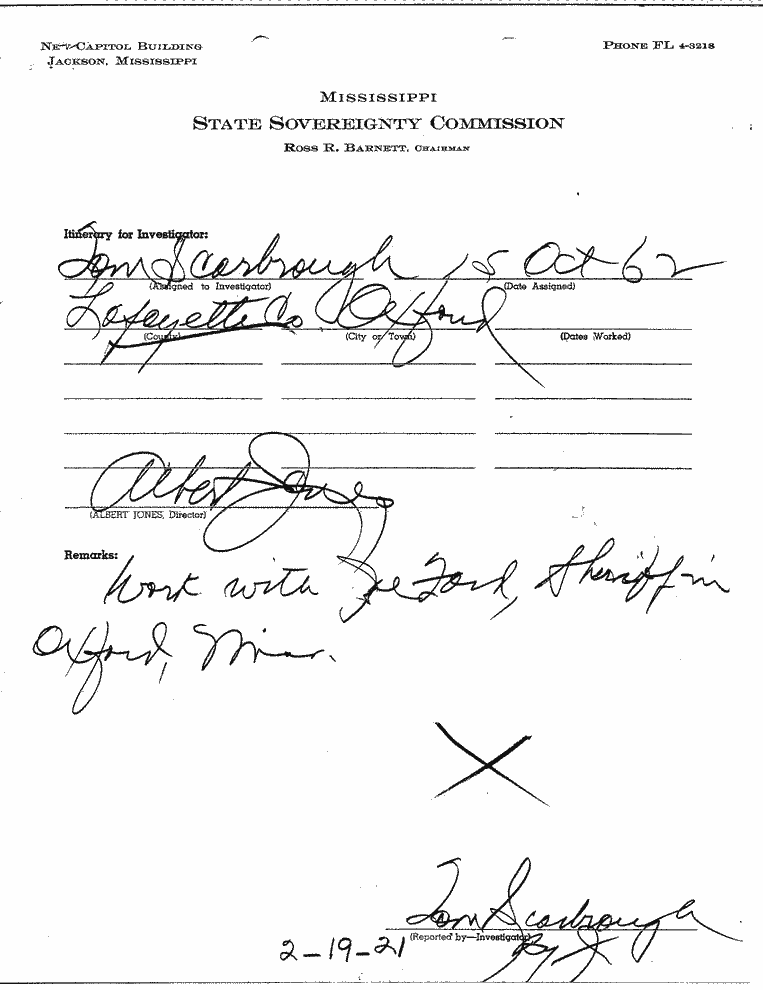 New Capitol Building
Jackson, Mississippi
Phone FL 4-3218
Mississippi
State Sovereignty Commission
Ross R. Barnett, Chairman
Itinerary for Investigator:
Tom Scarbrough 15 Oct 62
(Assigned to Investigator) (Date Assigned)
Lafayette Co Oxford
(County) (City or Town) (Dates Worked)
Albert Jones
(ALBERT JONES, Director)
Remarks:
Work with Joe Ford, Sheriff in
Oxford, Miss.
Tom Scarbrough
(Reported by—Investigator)
By J
2-19-21